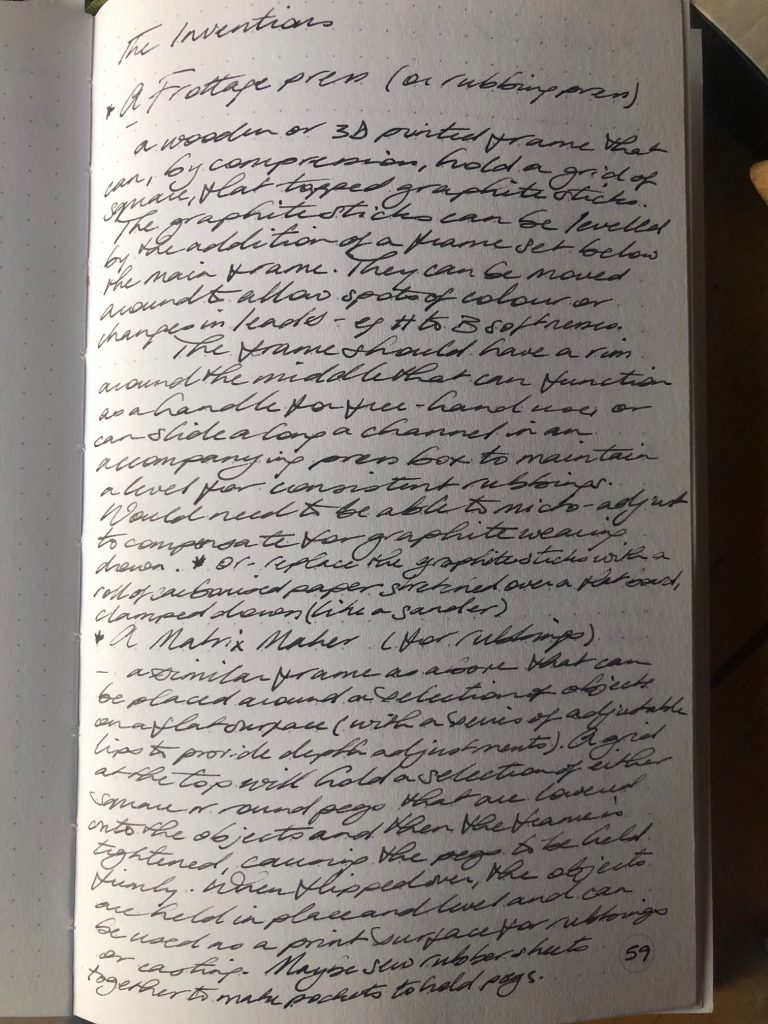 The Inventions
* A Frottage press (or rubbing press)
- a wooden or 3D printed frame that
can, by compression, hold a grid of
square, flat topped graphite sticks.
The graphite sticks can be levelled
by the addition of a frame set below
the main frame. They can be moved
around to allow spots of colour or
changes in leads - eg H to B softness.
The frame should have a rim
around the middle that can function
as a handle for free-hand use, or
can slide along a channel in an
accompanying press box to maintain
a level for consistent rubbings.
Would need to be able to micro-adjust
to compensate for graphite wearing
down. * or replace the graphite sticks with a
roll of carbonised paper stretched over a flat board,
clamped down (like a sander)
* A Matrix Maker (for rubbings)
- a similar frame as above that can
be placed around a selection of objects
on a flat surface (with a series of adjustable
lips to provide depth adjustments). A grid
at the top will hold a selection of either
square or round pegs that are lowered
onto the objects and then the frame is
tightened, causing the pegs to be held
firmly. When flipped over, the objects
are held in place and level and can
be used as a print surface for rubbings
or casting. Maybe sew rubber sheets
together to make pockets to hold pegs.
59